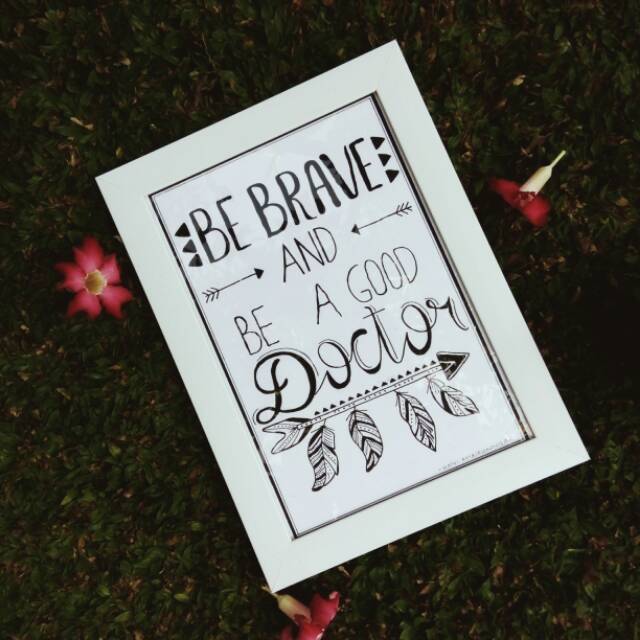 BE BRAVE
AND
BE A GOOD
Doctor